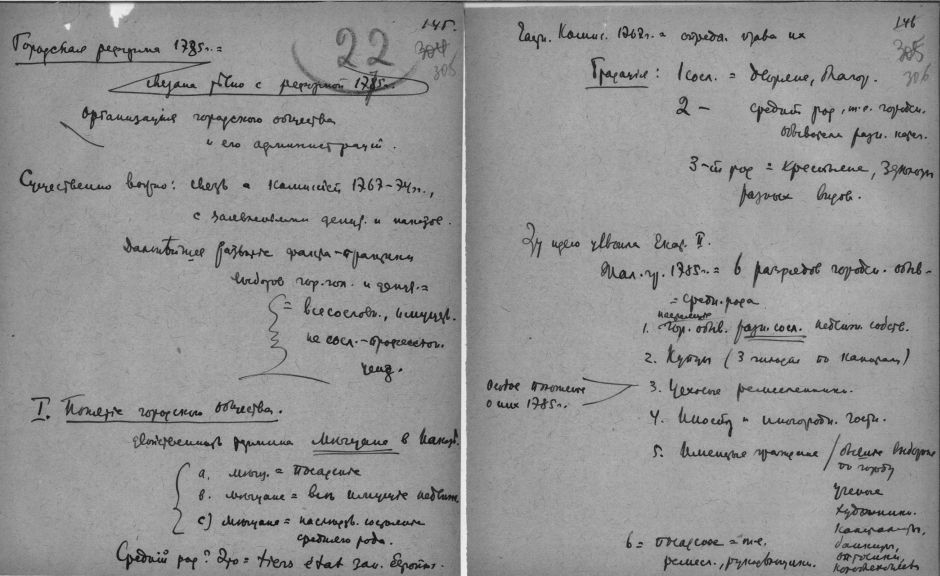 145.
22
304
305
Городская реформа 1785г. =
связана тѣсно с реформой 1775г.
Организация городского общества
и его администраций.
Существенно важно: связь с Комиссией 1767-74гг.,
с заявлениями депут. и наказов.
Дальнѣйшее развитие
выборов гор. гол. и депут. =
= всесословн., имуществ.
не сосл.-профессион.
ценз.
I. Понятие городского общества.
двойственность термина Мѣщане в Наказѣ.
а. мѣщ. = посадские
в. мѣщане = всѣ имущие недвижим.
с) мѣщане = наслѣдств. состояние
среднего рода.
Средний род? Это = tiers état зап. Европы.
146
305
306
Комис. 1767г. = опредѣл. права их
Градация: 1 сосл. = дворяне, благор.
2 — средний род, т.е. городск.
обыватели разн. катег.
3-ий род = крестьяне,
разных видов.
Эту идею усвоила Екат. II.
Жал. гр. 1785г. = 6 разрядов городск. обыв-
= средн. рода
1. гор. обыв. разн. сосл. недвижим. собств.
2. Купцы (3 гильдии по капиталу)
Особое положение
о них 1785г.
3. Цеховые ремесленники.
4. Иностр. и иногородн. гости.
5. Именитые граждане /
выборные
по городу
ученые
художники.
капиталисты,
банкиры,
оптовики,
корабельщики
6 = посадские = т.е.
ремесл., рукодѣльники.